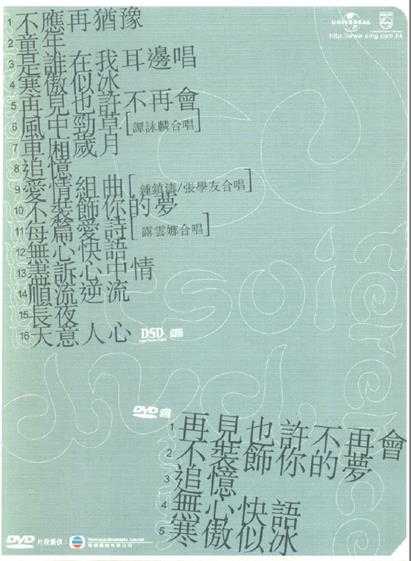 UNIVERSAL PHILIPS
http://www.umg.com.hk
1 不應再猶豫
2 童年
3 是誰在我耳邊唱
4 寒傲似冰
5 再見也許不再會
6 風中勁草[譚詠麟合唱]
7 車廂歲月
8 追憶
9 愛情組曲[鍾鎮濤/張學友合唱]
10 不裝飾你的夢
11 每篇愛詩[露雲娜合唱]
12 無心快語
13 盡訴心中情
14 順流逆流
15 長夜
16 天意人心 DSD
DVD
1 再見也許不再會
2 不裝飾你的夢
3 追憶
4 無心快語
5 寒傲似冰
DVD 片段提供：
電視廣播有限公司